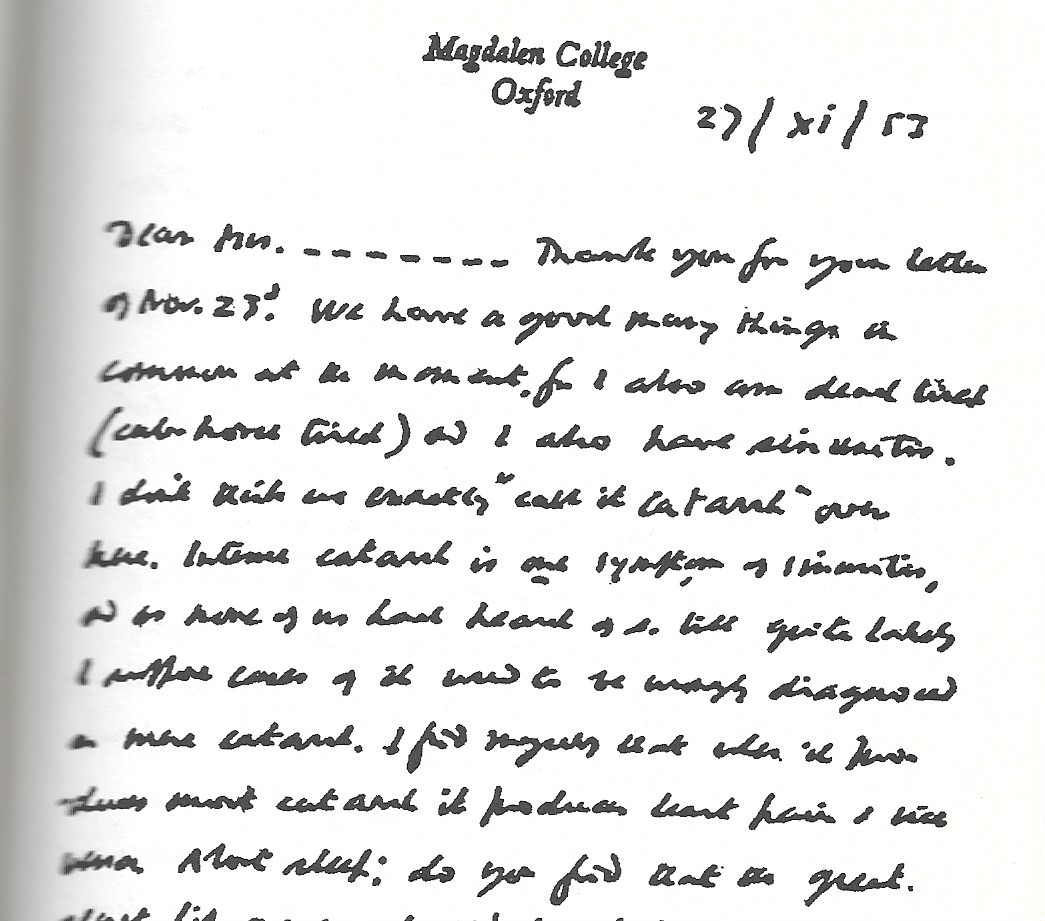 Magdalen College
Oxford
27/xi/53
Dear Mrs. ------- Thank you for your letter
of Nov. 23d. We have a good many things in
common at the moment, for I also am dead tired
(cab-horse tired) and I also have sinusitis.
I don't think we exactly "call it catarrh" over
here. Intense catarrh is one symptom of sinusitis,
and as none of us had heard of s. till quite lately
I suppose cases of it used to be wrongly diagnosed
as mere catarrh. I find myself that when it pro-
duces most catarrh it produces least pain & vice
versa. About sleep: do you find that the great